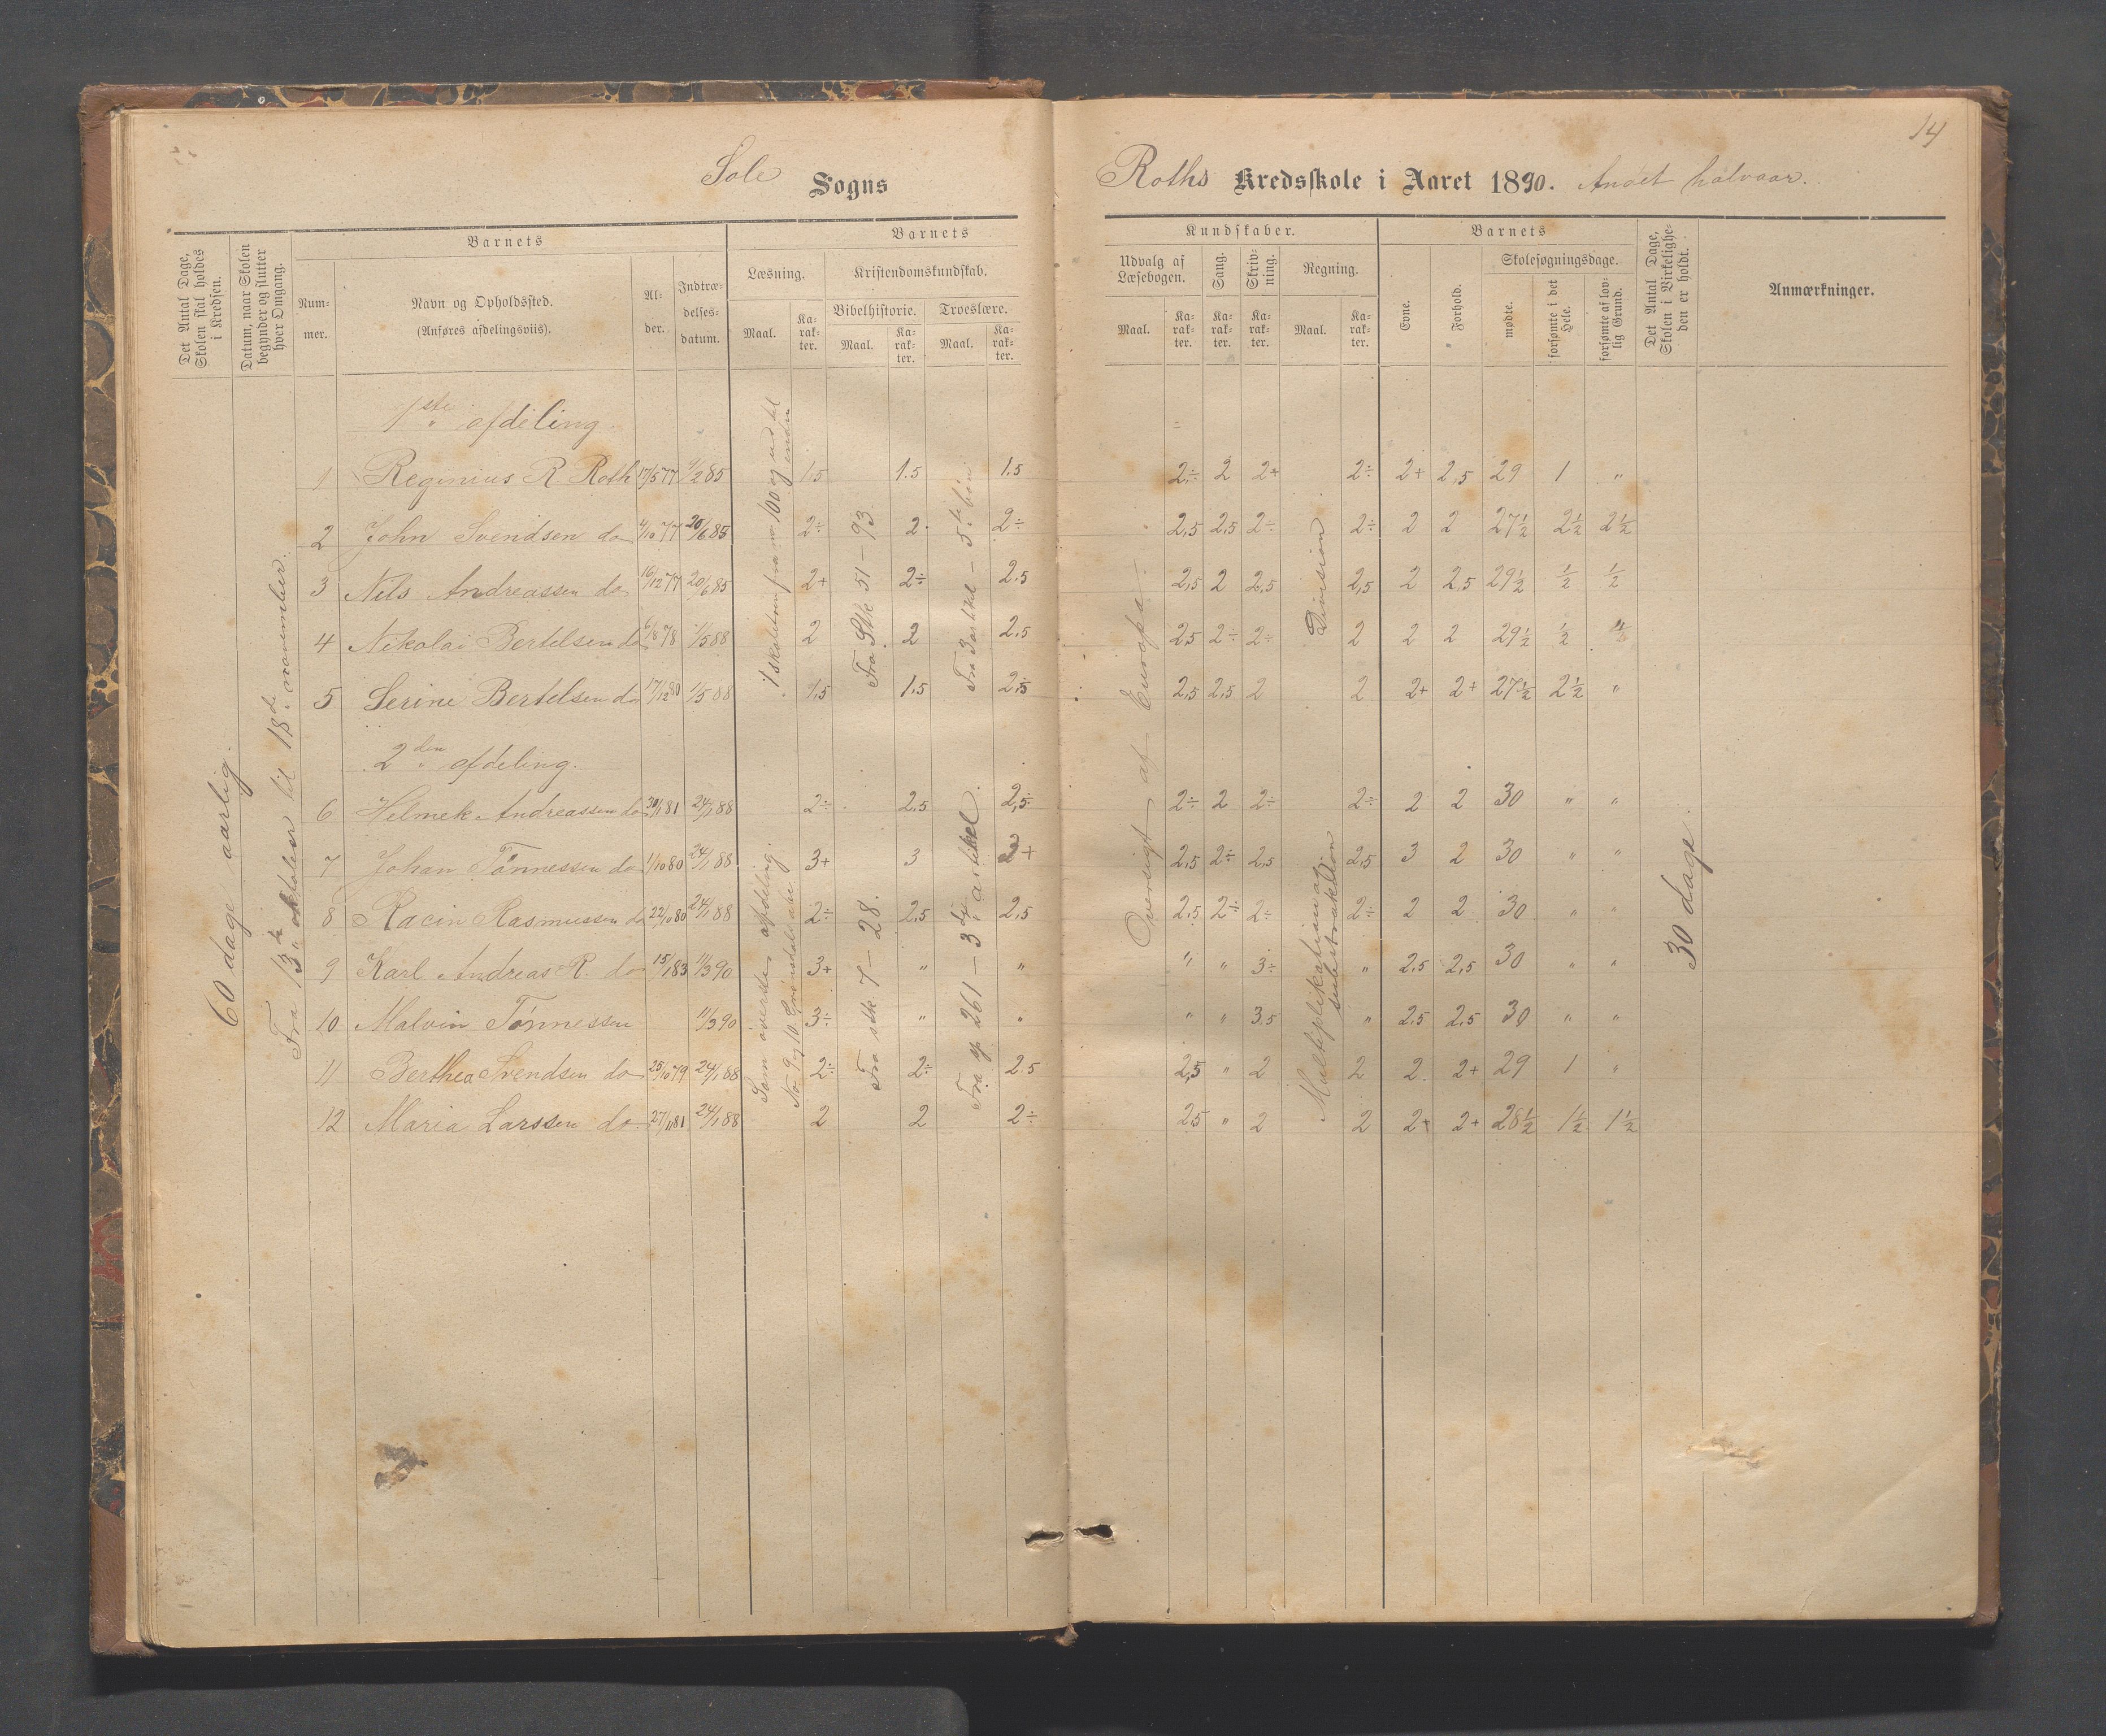 14
Sole Sogns
Roths Kredsskole i Aaret 1890. Andet halvaar.
Det Antal Dage, Skolen skal holdes i Kredsen.
Datum, naar Skolen begynder og slutter hver Omgang.
Barnets
Num-mer.
Navn og Opholdssted.
(Anføres afdelingsviis).
Al-der.
Indtræ-delses-datum.
Barnets
Læsning.
Maal.
Ka-rak-ter.
Kristendomskundskab.
Bibelhistorie.
Maal.
Ka-rak-ter.
Troeslære.
Maal.
Ka-rak-ter.
Kundskaber.
Udvalg af Læsebogen.
Maal.
Ka-rak-ter.
Sang.
Ka-rak-ter.
Skriv-ning.
Ka-rak-ter.
Regning.
Maal.
Ka-rak-ter.
Barnets
Evne.
Forhold.
Skolesøgningsdage.
mødte.
forsømte i det Hele.
forsømte af lov-lig Grund.
Det Antal Dage, Skolen i Virkelighe-den er holdt.
Anmærkninger.
60 dage aarlig.
Fra 13de oktober til 18de november.
1ste afdeling
1 Reginius R. Roth 17/5 77 9/2 85 1.5 1.5 1.5 2÷ 2 2+ 2÷ 2+ 2,5 29 1 "
2 John Svendsen do 4/10 77 20/6 85 2÷ 2 2÷ 2,5 2,5 2÷ 2÷ 2 2 27½ 2½ 2½
3 Nils Andreassen do 16/12 77 20/6 85 2+ 2÷ 2.5 2,5 2 2,5 2,5 2 2,5 29½ ½ ½
4 Nikolai Bertelsen do 6/8 78 1/5 88 2 2 2.5 2,5 2÷ 2÷ 2 2 2 29½ ½ "
5 Serine Bertelsen do 17/12 80 1/5 88 1.5 1.5 2.5 2,5 2,5 2 2 2+ 2+ 27½ 2½ "
Fra Stk 51 – 93.
Oversigt af Europa.
Division
2den afdeling.
6 Helmek Andreassen do 30/1 81 24/1 88 2÷ 2.5 2,5 2÷ 2 2÷ 2÷ 2 2 30 " "
7 Johan Tönnessen do 1/10 80 24/1 88 3+ 3 2+ 2,5 2÷ 2,5 2,5 3 2 30 " "
8 Racin Rasmussen do 22/10 80 24/1 88 2÷ 2.5 2,5 2.5 2÷ 2÷ 2÷ 2 2 30 " "
9 Karl Andreas R. do 15/1 83 11/3 90 3+ " " " " 3÷ " 2.5 2,5 30 " "
10 Malvin Tönnessen 11/3 90 3÷ " " " " 3.5 " 2.5 2,5 30 " "
11 Berthea Svendsen do 25/10 79 24/1 88 2÷ 2÷ 2.5 2,5 " 2 2 2 2+ 29 1 "
12 Maria Larssen do 27/1 81 24/1 88 2 2 2÷ 2,5 " 2 2 2+ 2+ 28½ 1½ 1½
Som överste afdeling.
Fra stk 7 – 28.
Fra sp 261 – 3die artikkel.
Multiplikation og subtraktion
30 dage.